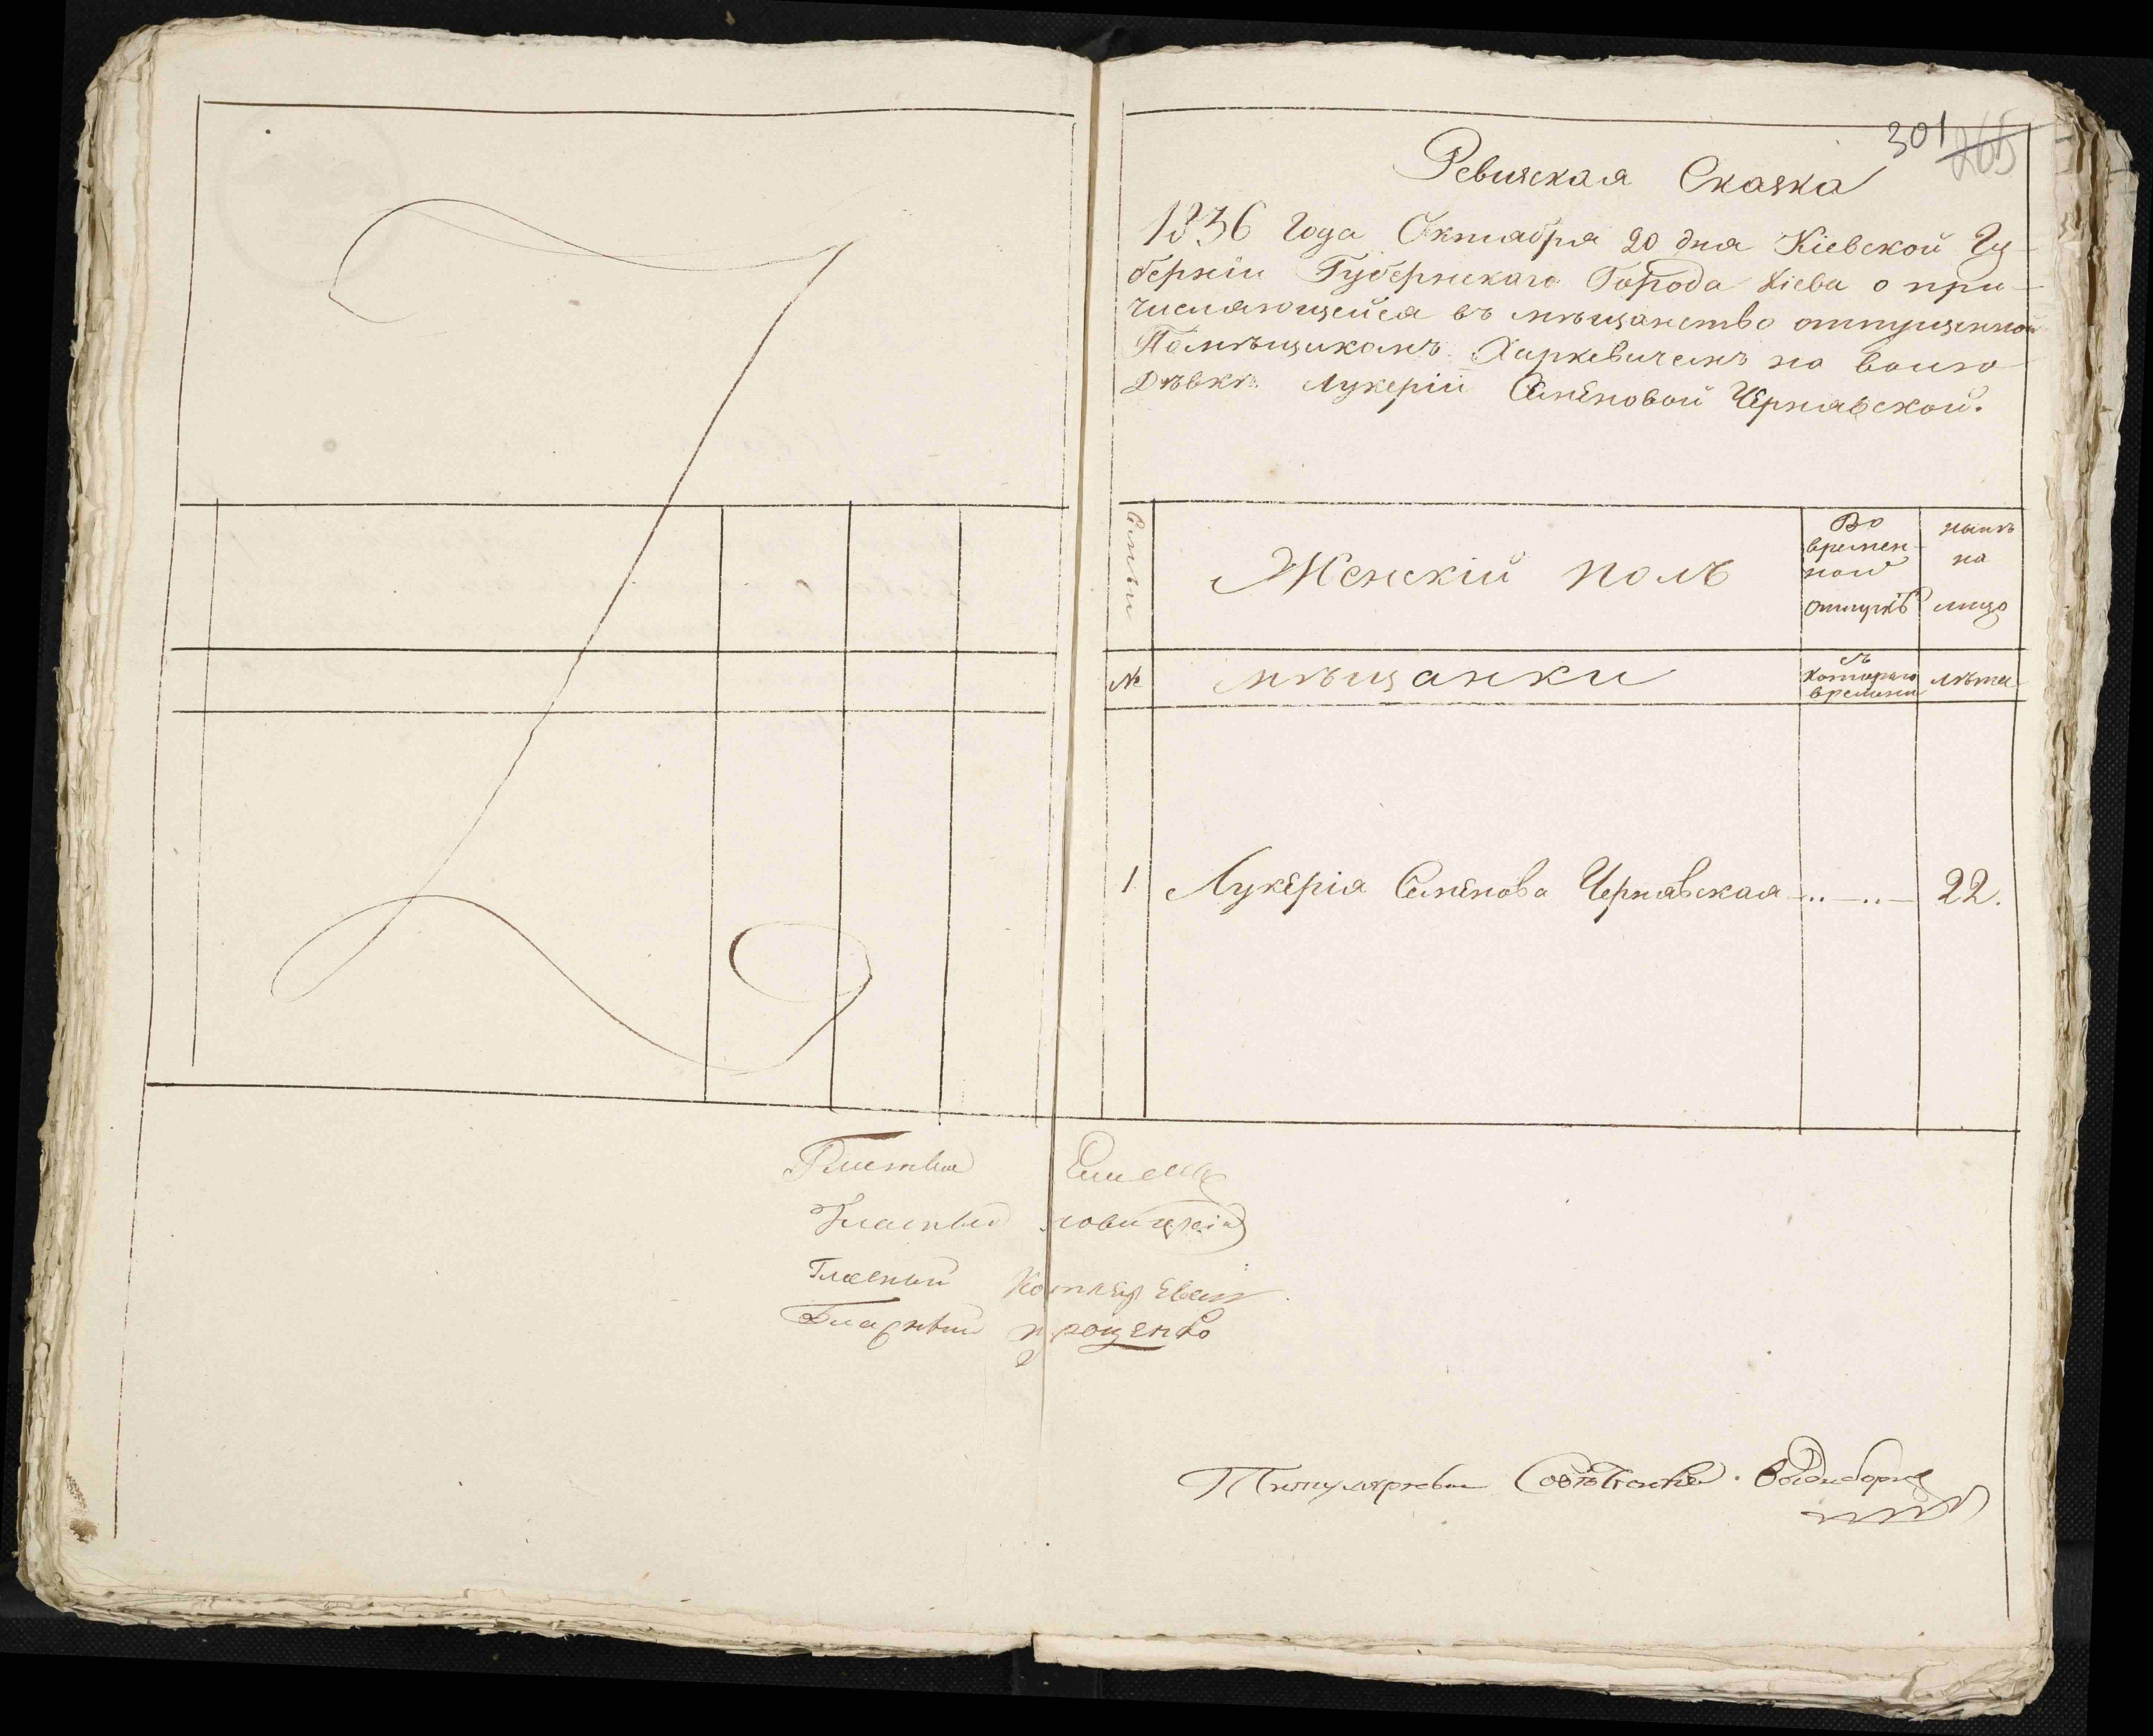 301 265
Ревизская Сказка
1836 года Октября 20 дня Кіевской Гу-
берніи Губернскаго Города Кіева о при-
числяющейся въ мѣщанство отпущенной
Помѣщикомъ Харкевичемъ на волю
Дѣвкѣ Лукеріи Семеновой Чернявской.
Семьи
Женскій полъ
Во
времен-
ной
отлучкѣ
нынѣ
на
лицо
№
мѣщанки
съ
котораго
времени
лѣта
1 Лукерія Семенова Чернявская —..—..— 22.
Гласный
Гласный
Гласный
Гласный Прощенко
Титулярный Совѣтникъ